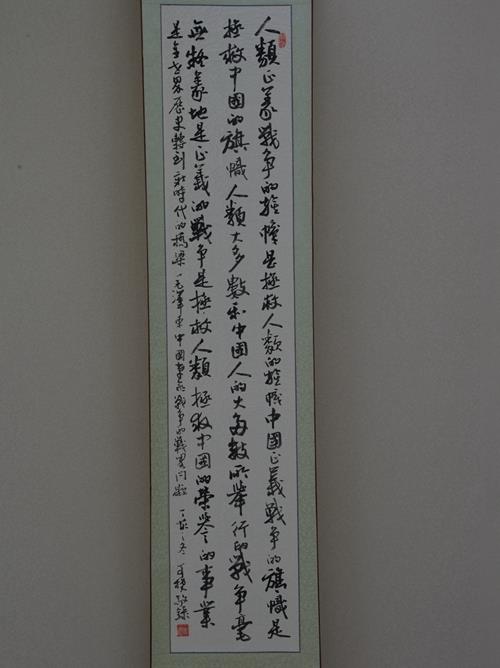 人類正義戰争的旗幟是拯救人類的旗幟中國正義戰争的旗幟是
拯救中國的旗幟人類大多數和中國人的大多數所舉行的戰争毫
無疑義地是正義的戰争是拯救人類拯救中國的榮譽的事業
是全世界歷史轉到新時代的橋梁 毛澤東中國革命戰争的戰畧问題 丁亥冬